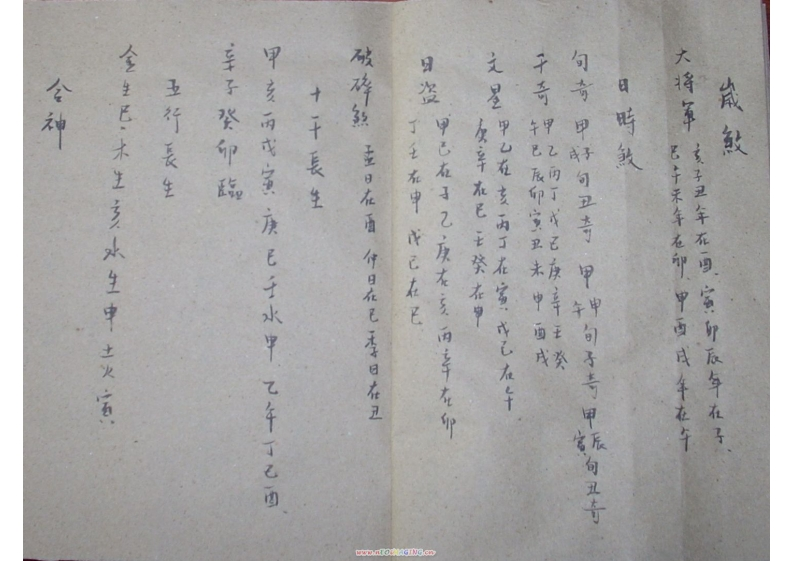 歲煞
大将軍 亥子丑年在酉 寅卯辰年在子
巳午未年在卯 甲酉戌年在午
日時煞
旬奇 甲子戌旬丑奇 甲申午旬子奇 甲辰寅旬丑奇
干奇 甲乙丙丁戊己庚辛壬癸
午巳辰卯寅丑未申酉戌
文星 甲乙在亥 丙丁在寅 戊己在午
庚辛在巳 壬癸在申
日盗 甲己在子 乙庚在亥 丙辛在卯
丁壬在申 戊己在巳
破碎煞 孟日在酉 仲日在巳 季日在丑
十干長生
甲亥丙戊寅 庚巳壬水申 乙午丁己酉
辛子癸卯臨
五行長生
金生巳 木生亥 水生申 土火寅
合神
www.